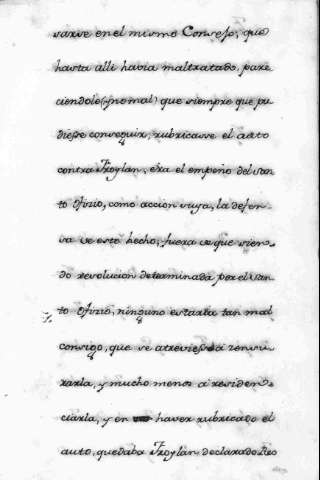 sarse en el mismo Consejo, que
hasta alli havia maltratado, pare
ciendole (y no mal) que siempre que pu
diesse conseguir, rubricasse el auto
contra Froylan, era el empeño del San
to Ofizio, como accion suya, la defen-
sa de este hecho, fuera de que sien-
do revolucion determinada por el San
to Ofizio, ninguno estaria tan mal
consigo, que se atreviesse a zensu
rarla, y mucho menos a residen-
ciarla, y en haver rubricado el
auto, quedaba Froylan declarado Reo